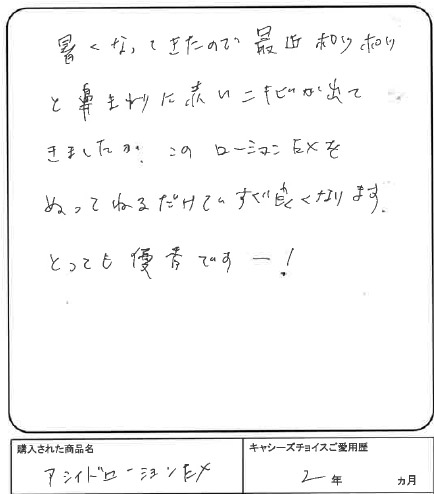 暑くなってきたので最近ポツポツ
と鼻まわりに赤いニキビが出て
きましたが、このローションEXを
ぬってねるだけですぐ良くなります。
とっても優秀ですー!
購入された商品名
アシィドローションEX
キャシーズチョイスご愛用歴
2年 ヵ月